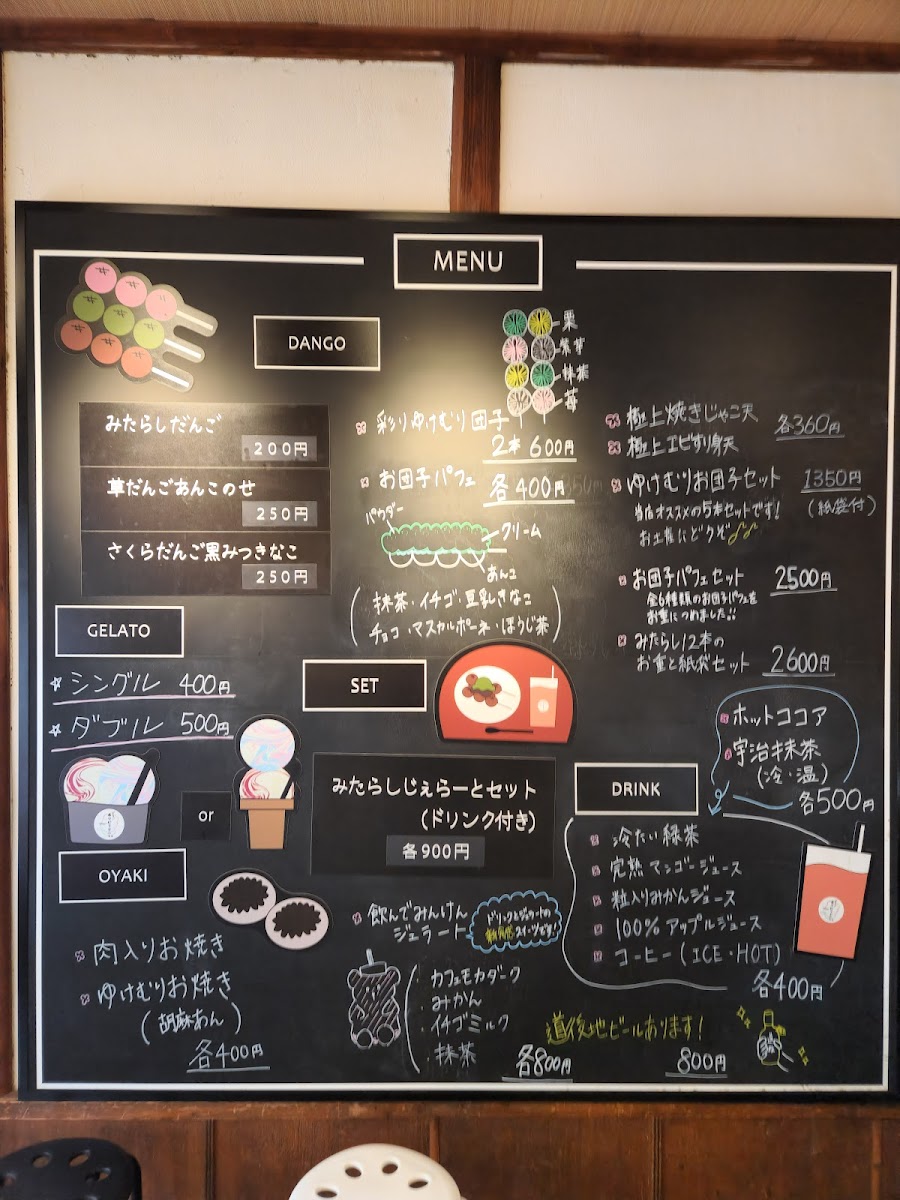 MENU
DANGO
みたらしだんご
200円
草だんごあんこのせ
250円
さくらだんご黒みつきなこ
250円
栗
紫芋
抹茶
苺
彩りゆけむり団子
2本 600円
お団子パフェ 各400円
パウダー
クリーム
あんこ
(抹茶・イチゴ・豆乳きなこ
チョコ・マスカルポーネ・ほうじ茶)
極上焼きじゃこ天
極上エビすり身天
各360円
ゆけむりお団子セット 1350円
(紙袋付)
当店オススメの5本セットです!
お土産にどうぞ
お団子パフェセット 2500円
全6種類のお団子パフェを
お重につめました!!
みたらし12本の
お重と紙袋セット 2600円
GELATO
シングル 400円
ダブル 500円
or
SET
みたらしじぇらーとセット
(ドリンク付き)
各900円
飲んでみんけん
ジェラート
ドリンクとジェラートの
新食感スイーツです!
カフェモカダーク
みかん
イチゴミルク
抹茶
各800円
OYAKI
肉入りお焼き
ゆけむりお焼き
(胡麻あん)
各400円
DRINK
ホットココア
宇治抹茶
(冷・温)
各500円
冷たい緑茶
完熟マンゴージュース
粒入りみかんジュース
100%アップルジュース
コーヒー(ICE・HOT)
各400円
道後地ビールあります!
800円